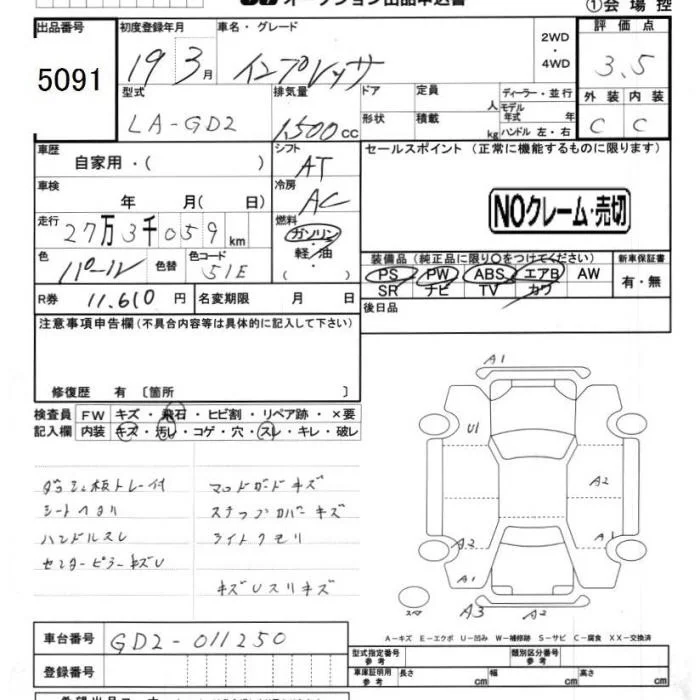 オークション出品申込書
①会場控
出品番号 初度登録年月 車名・グレード 2WD ・ 4WD 評価点
5091 19年3月 インプレッサ 3.5
型式 排気量 ドア 定員 人 ディーラー・並行 外装 内装
LA-GD2 1,500cc 形状 積載 kg モデル年式 年 C C
ハンドル 左・右
車歴 自家用・( ) シフト AT セールスポイント (正常に機能するものに限ります)
車検 年 月( 日) 冷房 AC
NOクレーム・売切
走行 27万3千059km 燃料 ガソリン・軽・油( )
色 パール 色替 色コード 51E
装備品(純正品に限り○をつけてください) 新車保証書
PS PW ABS エアB AW 有・無
SR ナビ TV カワ
R券 11,610円 名変期限 月 日 後日品
注意事項申告欄(不具合内容等は具体的に記入して下さい)
修復歴 有 〔箇所 〕
検査員 FW キズ・飛石・ヒビ割・リペア跡・×要
記入欄 内装 キズ・汚レ・コゲ・穴・スレ・キレ・破レ
A1
U1
A2
A2 A1
A1
A3 A2
スペア
ダッシュ板トレー付 マッドガードキズ
シートヘタリ ステップカバーキズ
ハンドルスレ ライトクモリ
センターピラーキズU
キズUスリキズ
A-キズ E-エクボ U-凹み W-補修跡 S-サビ C-腐食 XX-交換済
車台番号 GD2-011250
登録番号
型式指定番号 参考 類別区分番号 参考
車庫証明用 参考 長さ cm 幅 cm 高さ cm